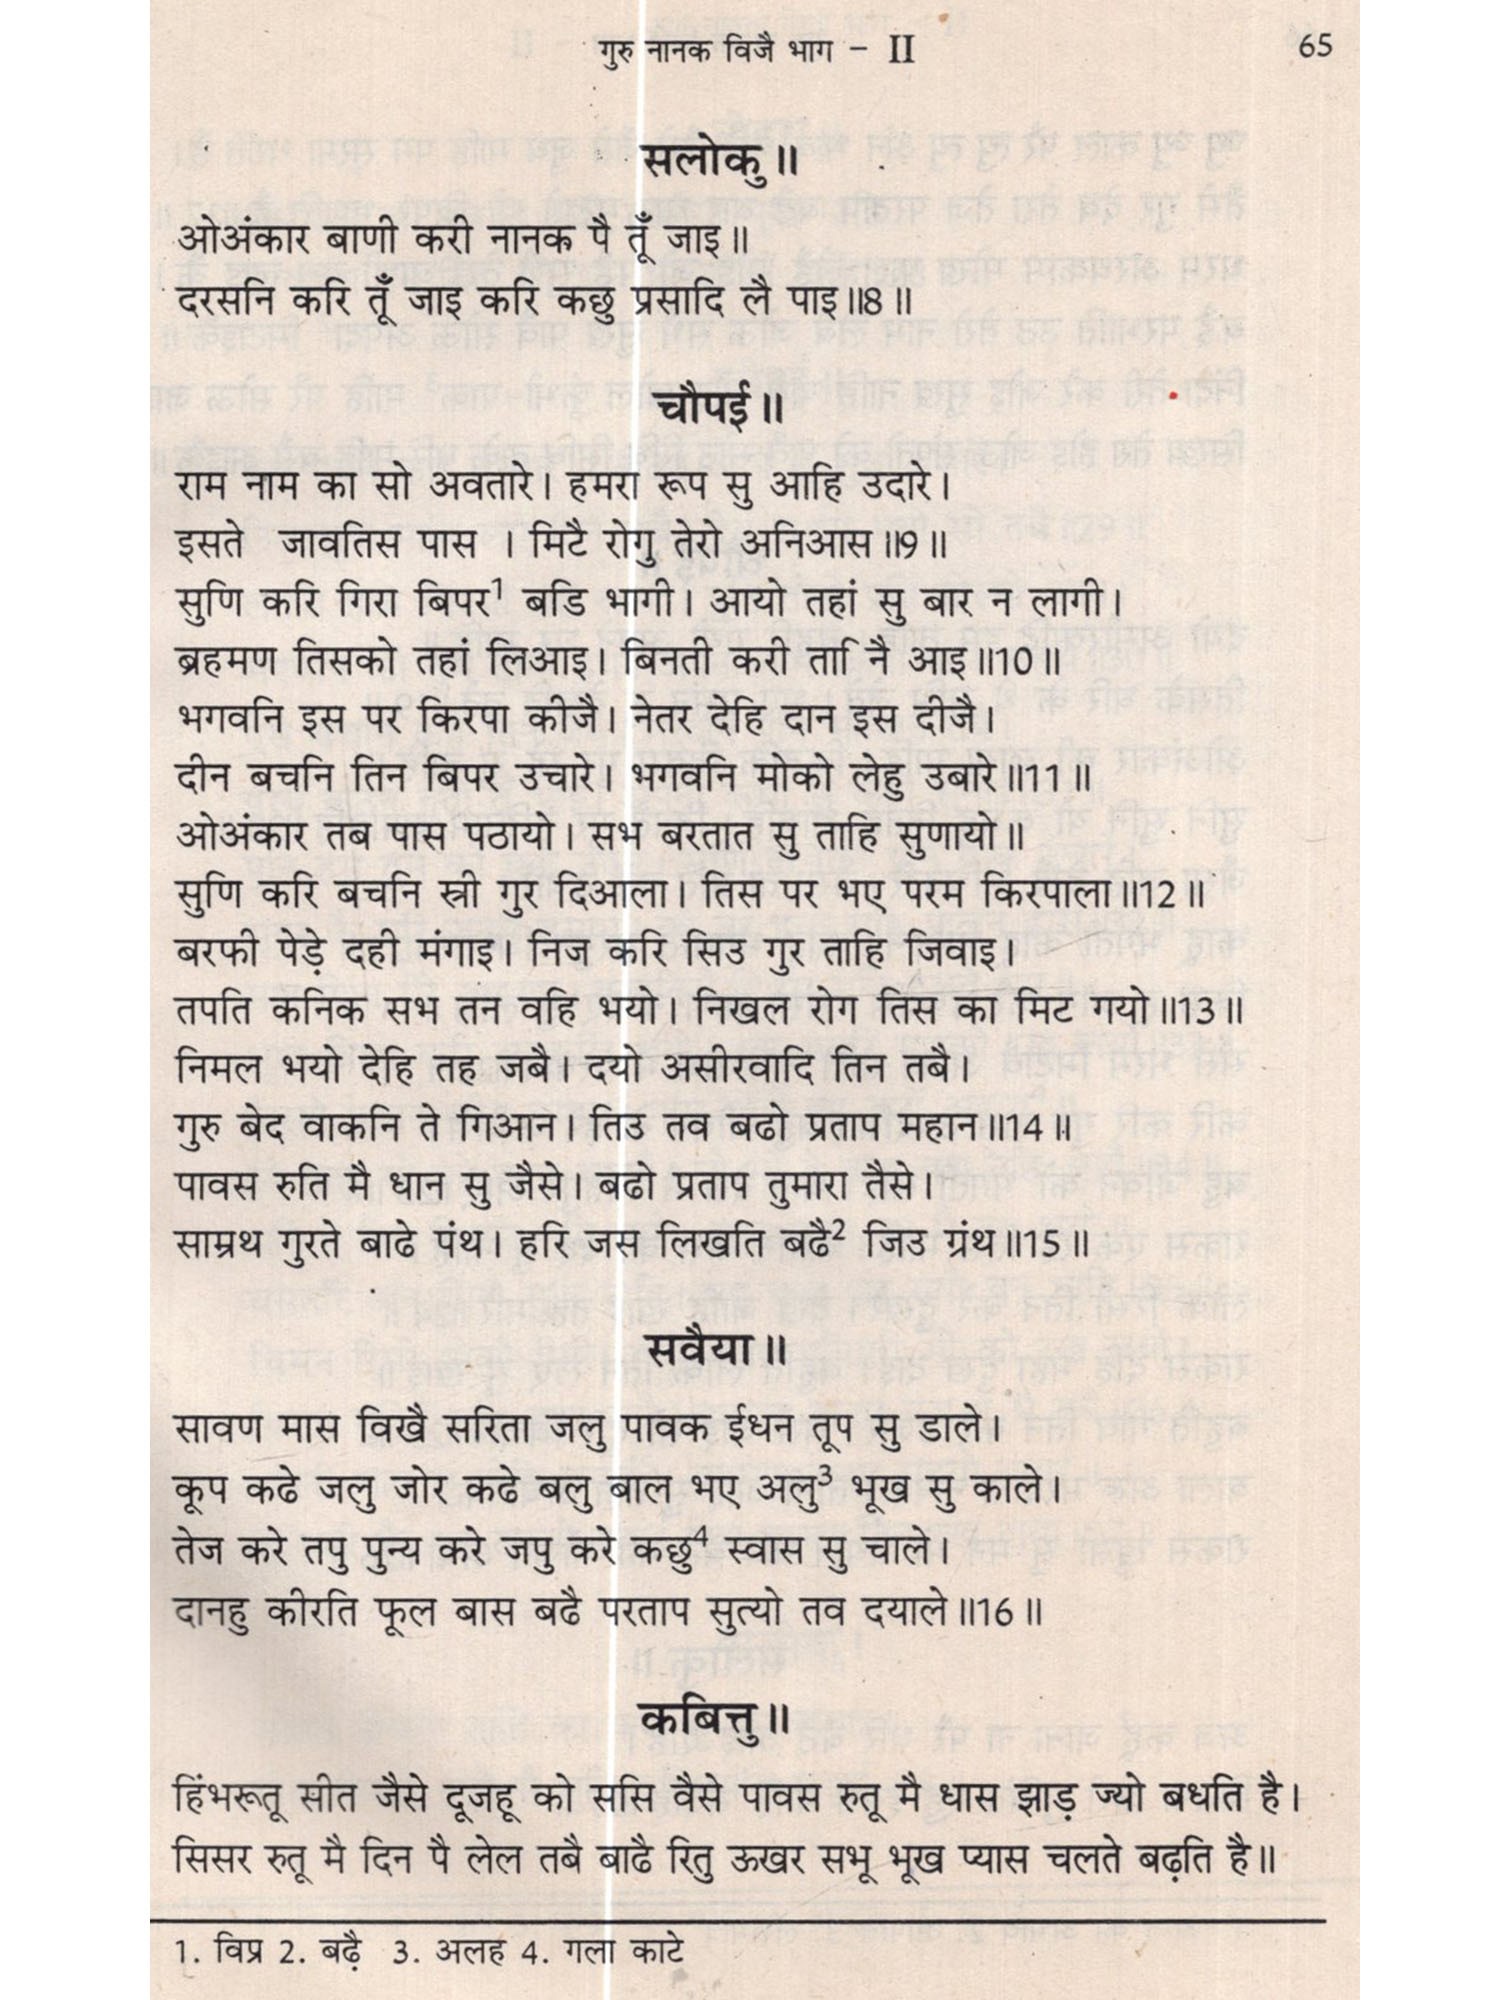 गुरु नानक विजै भाग - II
65
सलोकु॥
ओअंकार बाणी करी नानक पै तूँ जाइ॥
दरसनि करि तूँ जाइ करि कछु प्रसादि लै पाइ॥8॥
चौपई॥
राम नाम का सो अवतारे। हमरा रूप सु आहि उदारे।
इसते जावतिस पास । मिटै रोगु तेरो अनिआस॥9॥
सुणि करि गिरा बिपर¹ बडि भागी। आयो तहां सु बार न लागी।
ब्रहमण तिसको तहां लिआइ। बिनती करी ताि नै आइ॥10॥
भगवनि इस पर किरपा कीजै। नेतर देहि दान इस दीजै।
दीन बचनि तिन बिपर उचारे। भगवनि मोको लेहु उबारे॥11॥
ओअंकार तब पास पठायो। सभ बरतात सु ताहि सुणायो॥
सुणि करि बचनि स्री गुर दिआला। तिस पर भए परम किरपाला॥12॥
बरफी पेड़े दही मंगाइ। निज करि सिउ गुर ताहि जिवाइ।
तपति कनिक सभ तन वहि भयो। निखल रोग तिस का मिट गयो॥13॥
निमल भयो देहि तह जबै। दयो असीरवादि तिन तबै।
गुरु बेद वाकनि ते गिआन। तिउ तव बढो प्रताप महान॥14॥
पावस रुति मै धान सु जैसे। बढो प्रताप तुमारा तैसे।
साम्रथ गुरते बाढे पंथ। हरि जस लिखति बढै² जिउ ग्रंथ॥15॥
सवैया॥
सावण मास विखै सरिता जलु पावक ईधन तूप सु डाले।
कूप कढे जलु जोर कढे बलु बाल भए अलु³ भूख सु काले।
तेज करे तपु पुन्य करे जपु करे कछु⁴ स्वास सु चाले।
दानहु कीरति फूल बास बढै परताप सुत्यो तव दयाले॥16॥
कबित्तु॥
हिंभरूतू सीत जैसे दूजहू को ससि वैसे पावस रुतू मै धास झाड़ ज्यो बधति है।
सिसर रुतू मै दिन पै लेल तबै बाढै रितु ऊखर सभू भूख प्यास चलते बढ़ति है॥
1. विप्र 2. बढ़ै 3. अलह 4. गला काटे